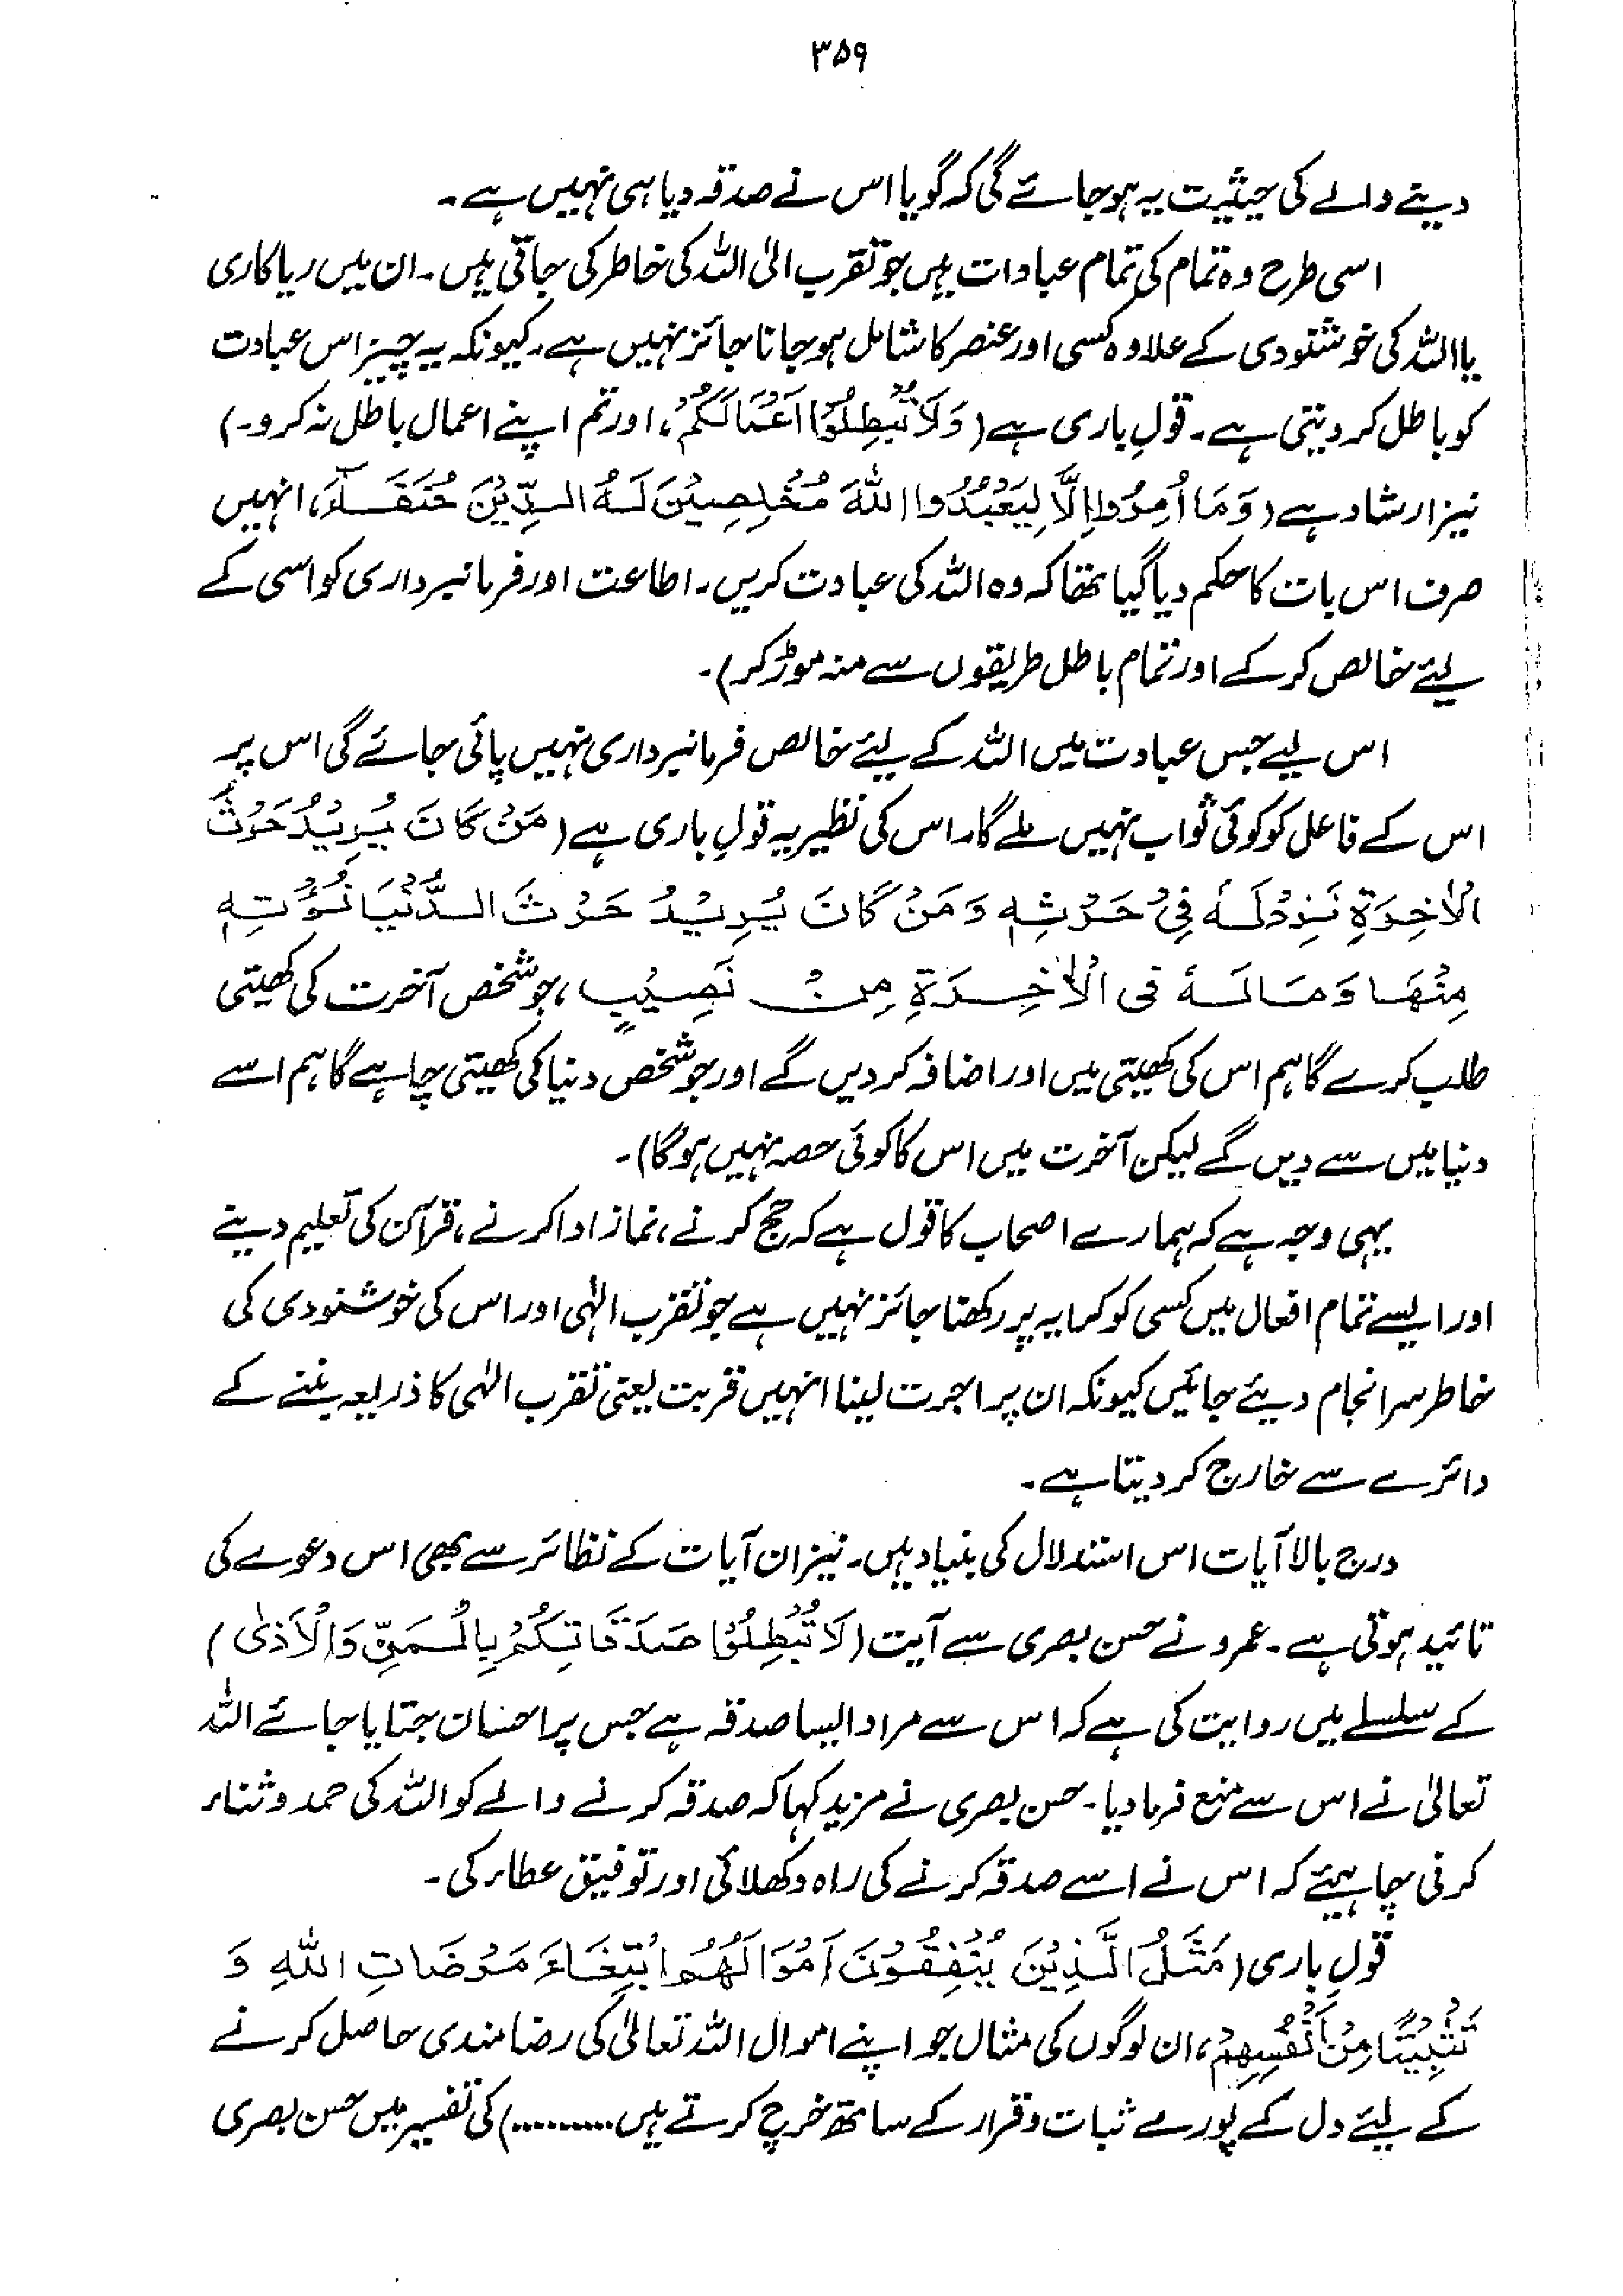 ۳۵۹
دینے والے کی حیثیت یہ ہوجائے گی کہ گویا اس نے صدقہ دیا ہی نہیں ہے۔
اسی طرح وہ تمام کی تمام عبادات ہیں جو تقرب الی اللہ کی خاطر کی جاتی ہیں۔ ان میں ریاکاری
یا اللہ کی خوشنودی کے علاوہ کسی اور عنصر کا شامل ہوجانا جائز نہیں ہے۔ کیونکہ یہ چیز اس عبادت
کو باطل کر دیتی ہے۔ قولِ باری ہے (وَلَا تُبْطِلُوْا اَعْمَالَكُمْ، اور تم اپنے اعمال باطل نہ کرو۔)
نیز ارشاد ہے (وَمَا اُمِرُوْا اِلَّا لِيَعْبُدُوا اللّٰهَ مُخْلِصِيْنَ لَهُ الدِّيْنَ حُنَفَآءَ، انہیں
صرف اس بات کا حکم دیا گیا تھا کہ وہ اللہ کی عبادت کریں۔ اطاعت اور فرمانبرداری کو اسی کے
لیئے خالص کر کے اور تمام باطل طریقوں سے منہ موڑ کر)۔
اس لیے جس عبادت میں اللہ کے لیئے خالص فرمانبرداری نہیں پائی جائے گی اس پر
اس کے فاعل کو کوئی ثواب نہیں ملے گا۔ اس کی نظیر یہ قولِ باری ہے (مَنْ كَانَ يُرِيْدُ حَرْثَ
الْاٰخِرَةِ نَزِدْ لَهٗ فِيْ حَرْثِهٖ وَمَنْ كَانَ يُرِيْدُ حَرْثَ الدُّنْيَا نُؤْتِهٖ
مِنْهَا وَمَا لَهٗ فِى الْاٰخِرَةِ مِنْ نَصِيْبٍ، جو شخص آخرت کی کھیتی
طلب کرے گا ہم اس کی کھیتی میں اور اضافہ کردیں گے اور جو شخص دنیا کی کھیتی چاہے گا ہم اسے
دنیا میں سے دیں گے لیکن آخرت میں اس کا کوئی حصہ نہیں ہوگا)۔
یہی وجہ ہے کہ ہمارے اصحاب کا قول ہے کہ حج کرنے، نماز ادا کرنے، قرآن کی تعلیم دینے
اور ایسے تمام افعال میں کسی کو کرایہ پر رکھنا جائز نہیں ہے جو تقرب الٰہی اور اس کی خوشنودی کی
خاطر سرانجام دیئے جائیں کیونکہ ان پر اجرت لینا انہیں قربت یعنی تقرب الٰہی کا ذریعہ بننے کے
دائرے سے خارج کر دیتا ہے۔
درج بالا آیات اس استدلال کی بنیاد ہیں۔ نیز ان آیات کے نظائر سے بھی اس دعوے کی
تائید ہوتی ہے۔ عمرو نے حسن بصری سے آیت (لَا تُبْطِلُوْا صَدَقَاتِكُمْ بِالْمَنِّ وَالْاَذٰى)
کے سلسلے میں روایت کی ہے کہ اس سے مراد ایسا صدقہ ہے جس پر احسان جتایا جائے اللہ
تعالیٰ نے اس سے منع فرما دیا۔ حسن بصری نے مزید کہا کہ صدقہ کرنے والے کو اللہ کی حمد وثناء
کرنی چاہیئے کہ اس نے اسے صدقہ کرنے کی راہ دکھلائی اور توفیق عطاء کی۔
قولِ باری (مَثَلُ الَّذِيْنَ يُنْفِقُوْنَ اَمْوَالَهُمُ ابْتِغَاءَ مَرْضَاتِ اللّٰهِ وَ
تَثْبِيْتًا مِنْ اَنْفُسِهِمْ، ان لوگوں کی مثال جو اپنے اموال اللہ تعالیٰ کی رضامندی حاصل کرنے
کے لیئے دل کے پورے ثبات وقرار کے ساتھ خرچ کرتے ہیں..........) کی تفسیر میں حسن بصری